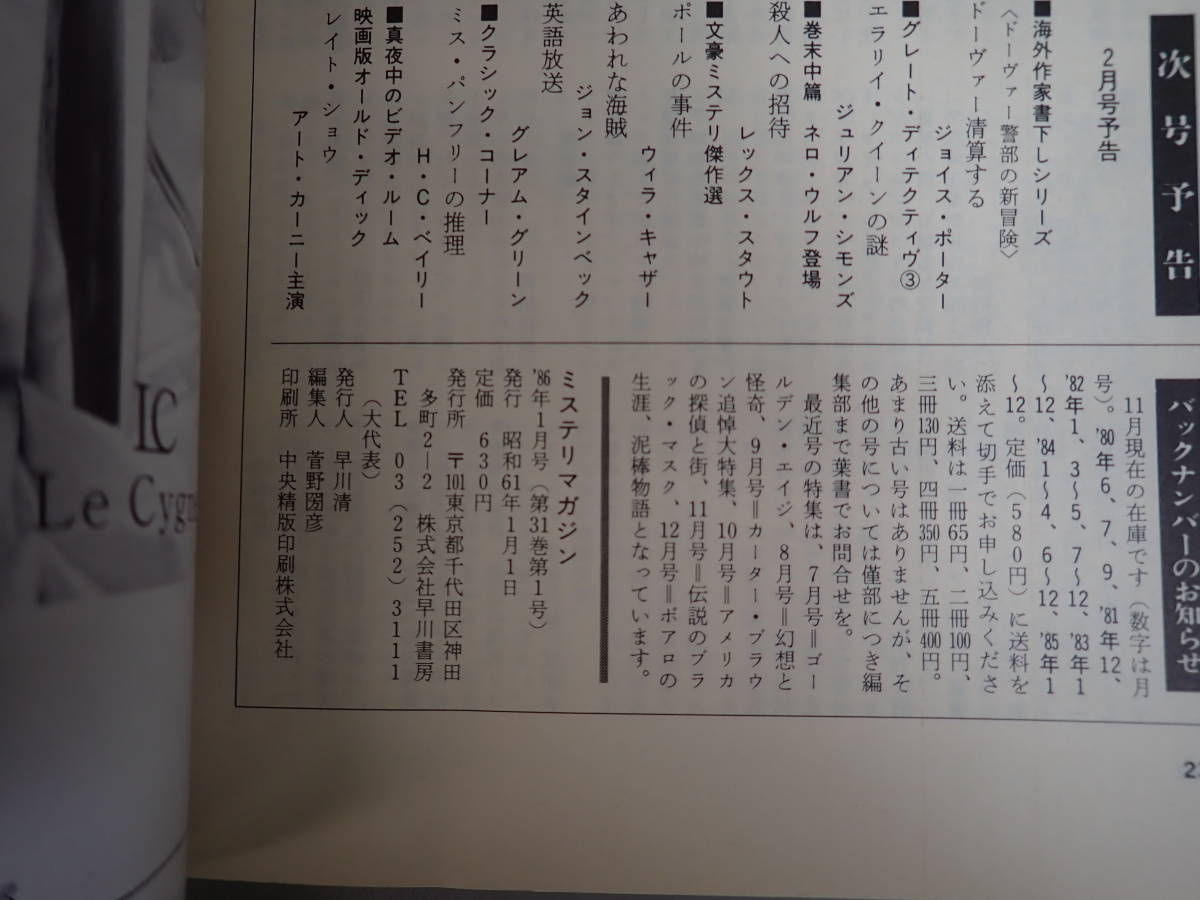 次号予告
2月号予告
■海外作家書下しシリーズ
〈ドーヴァー警部の新冒険〉
ドーヴァー清算する
ジョイス・ポーター
■グレート・ディテクティヴ③
エラリイ・クイーンの謎
ジュリアン・シモンズ
■巻末中篇 ネロ・ウルフ登場
殺人への招待
レックス・スタウト
■文豪ミステリ傑作選
ポールの事件
ウィラ・キャザー
あわれな海賊
ジョン・スタインベック
英語放送
グレアム・グリーン
■クラシック・コーナー
ミス・パンフリーの推理
H・C・ベイリー
■真夜中のビデオ・ルーム
映画版オールド・ディック
レイト・ショウ
アート・カーニー主演
バックナンバーのお知らせ
11月現在の在庫です(数字は月
号)。'80年6、7、9、'81年12、
'82年1、3〜5、7〜12、'83年1
〜12、'84 1〜4、6〜12、'85年1
〜12。定価(580円)に送料を
添えて切手でお申し込みくださ
い。送料は一冊65円、二冊100円、
三冊130円、四冊350円、五冊400円。
あまり古い号はありませんが、そ
の他の号については僅部につき編
集部まで葉書でお問合せを。
最近号の特集は、7月号=ゴー
ルデン・エイジ、8月号=幻想と
怪奇、9月号=カーター・ブラウ
ン追悼大特集、10月号=アメリカ
の探偵と街、11月号=伝説のブラ
ック・マスク、12月号=ポアロの
生涯、泥棒物語となっています。
ミステリマガジン
'86年1月号(第31巻第1号)
発行 昭和61年1月1日
定価 630円
発行所 〒101東京都千代田区神田
多町2―2 株式会社早川書房
TEL 03(252)3111
(大代表)
発行人 早川清
編集人 菅野圀彦
印刷所 中央精版印刷株式会社
LC
Le Cygn